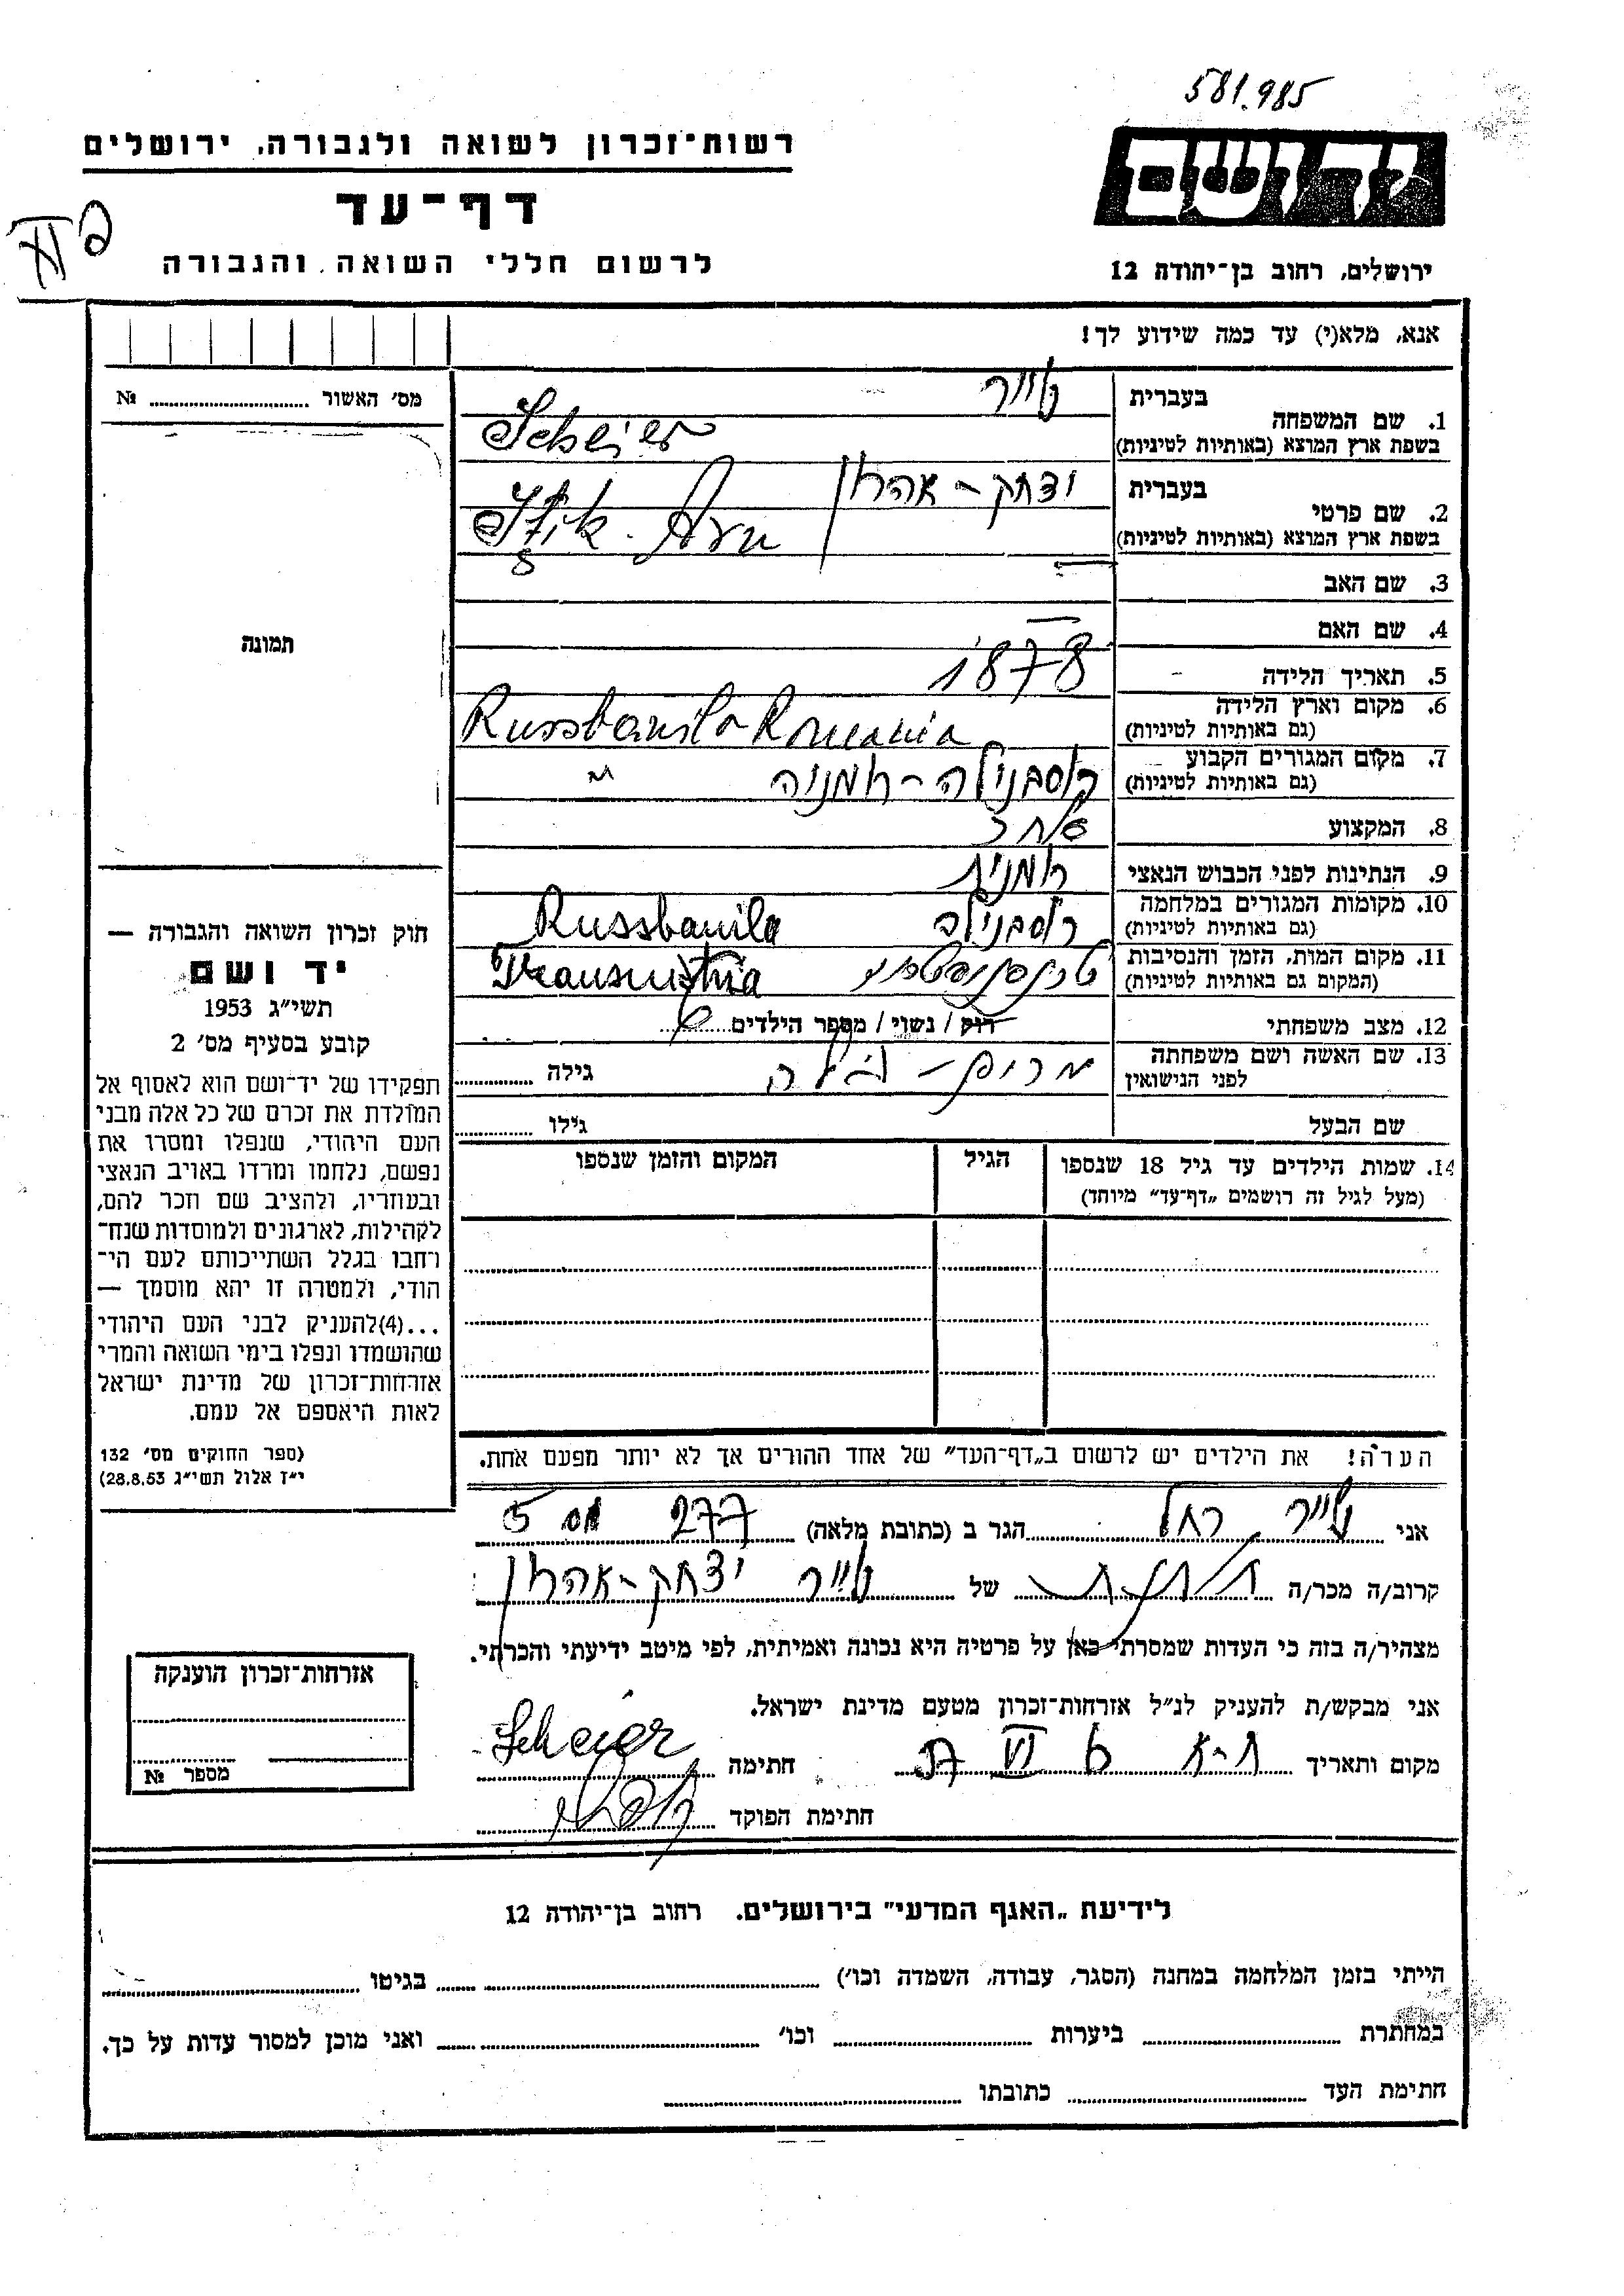 581.985
יד ושם
רשות־זכרון לשואה ולגבורה, ירושלים
דף־עד
לרשום חללי השואה והגבורה
ירושלים, רחוב בן־יהודה 12
אנא, מלא(י) עד כמה שידוע לך!
מס׳ האשור ........ №
תמונה
1. שם המשפחה
בעברית שייר
בשפת ארץ המוצא (באותיות לטיניות) Scheier
2. שם פרטי
בעברית יצחק - אהרון
בשפת ארץ המוצא (באותיות לטיניות) Itzik. Arn
3. שם האב
4. שם האם
5. תאריך הלידה 1878
6. מקום וארץ הלידה
(גם באותיות לטיניות) Russbanila Romania
7. מקום המגורים הקבוע רוסבנילה - רומניה
(גם באותיות לטיניות) "
8. המקצוע
9. הנתינות לפני הכבוש הנאצי רומנית
10. מקומות המגורים במלחמה רוסבנילה
(גם באותיות לטיניות) Russbanila
11. מקום המות, הזמן והנסיבות
(המקום גם באותיות לטיניות) Transnistria
12. מצב משפחתי רוק / נשוי / מספר הילדים
13. שם האשה ושם משפחתה
לפני הנישואין גילה
שם הבעל גילו
14. שמות הילדים עד גיל 18 שנספו
(מעל לגיל זה רושמים „דף־עד” מיוחד)
הגיל
המקום והזמן שנספו
הערה! את הילדים יש לרשום ב„דף־העד” של אחד ההורים אך לא יותר מפעם אחת.
חוק זכרון השואה והגבורה —
יד ושם
תשי״ג 1953
קובע בסעיף מס׳ 2
תפקידו של יד־ושם הוא לאסוף אל
המולדת את זכרם של כל אלה מבני
העם היהודי, שנפלו ומסרו את
נפשם, נלחמו ומרדו באויב הנאצי
ובעוזריו, ולהציב שם וזכר להם,
לקהילות, לארגונים ולמוסדות שנח־
רחבו בגלל השתייכותם לעם הי־
הודי, ולמטרה זו יהא מוסמך —
...(4)להעניק לבני העם היהודי
שהושמדו ונפלו בימי השואה והמרי
אזרחות־זכרון של מדינת ישראל
לאות היאספם אל עמם.
(ספר החוקים מס׳ 132
י״ז אלול תשי״ג 28.8.53)
אני שייר רחל הגר ב (כתובת מלאה) 277
קרוב/ה מכר/ה של שייר יצחק - אהרון
מצהיר/ה בזה כי העדות שמסרתי כאן על פרטיה היא נכונה ואמיתית, לפי מיטב ידיעתי והכרתי.
אני מבקש/ת להעניק לנ״ל אזרחות־זכרון מטעם מדינת ישראל.
מקום ותאריך ת-א VI חתימה Scheier
חתימת הפוקד
אזרחות־זכרון הוענקה
מספר №
לידיעת „האגף המדעי” בירושלים. רחוב בן־יהודה 12
הייתי בזמן המלחמה במחנה (הסגר, עבודה, השמדה וכו׳) בגיטו
במחתרת ביערות וכו׳ ואני מוכן למסור עדות על כך.
חתימת העד כתובתו